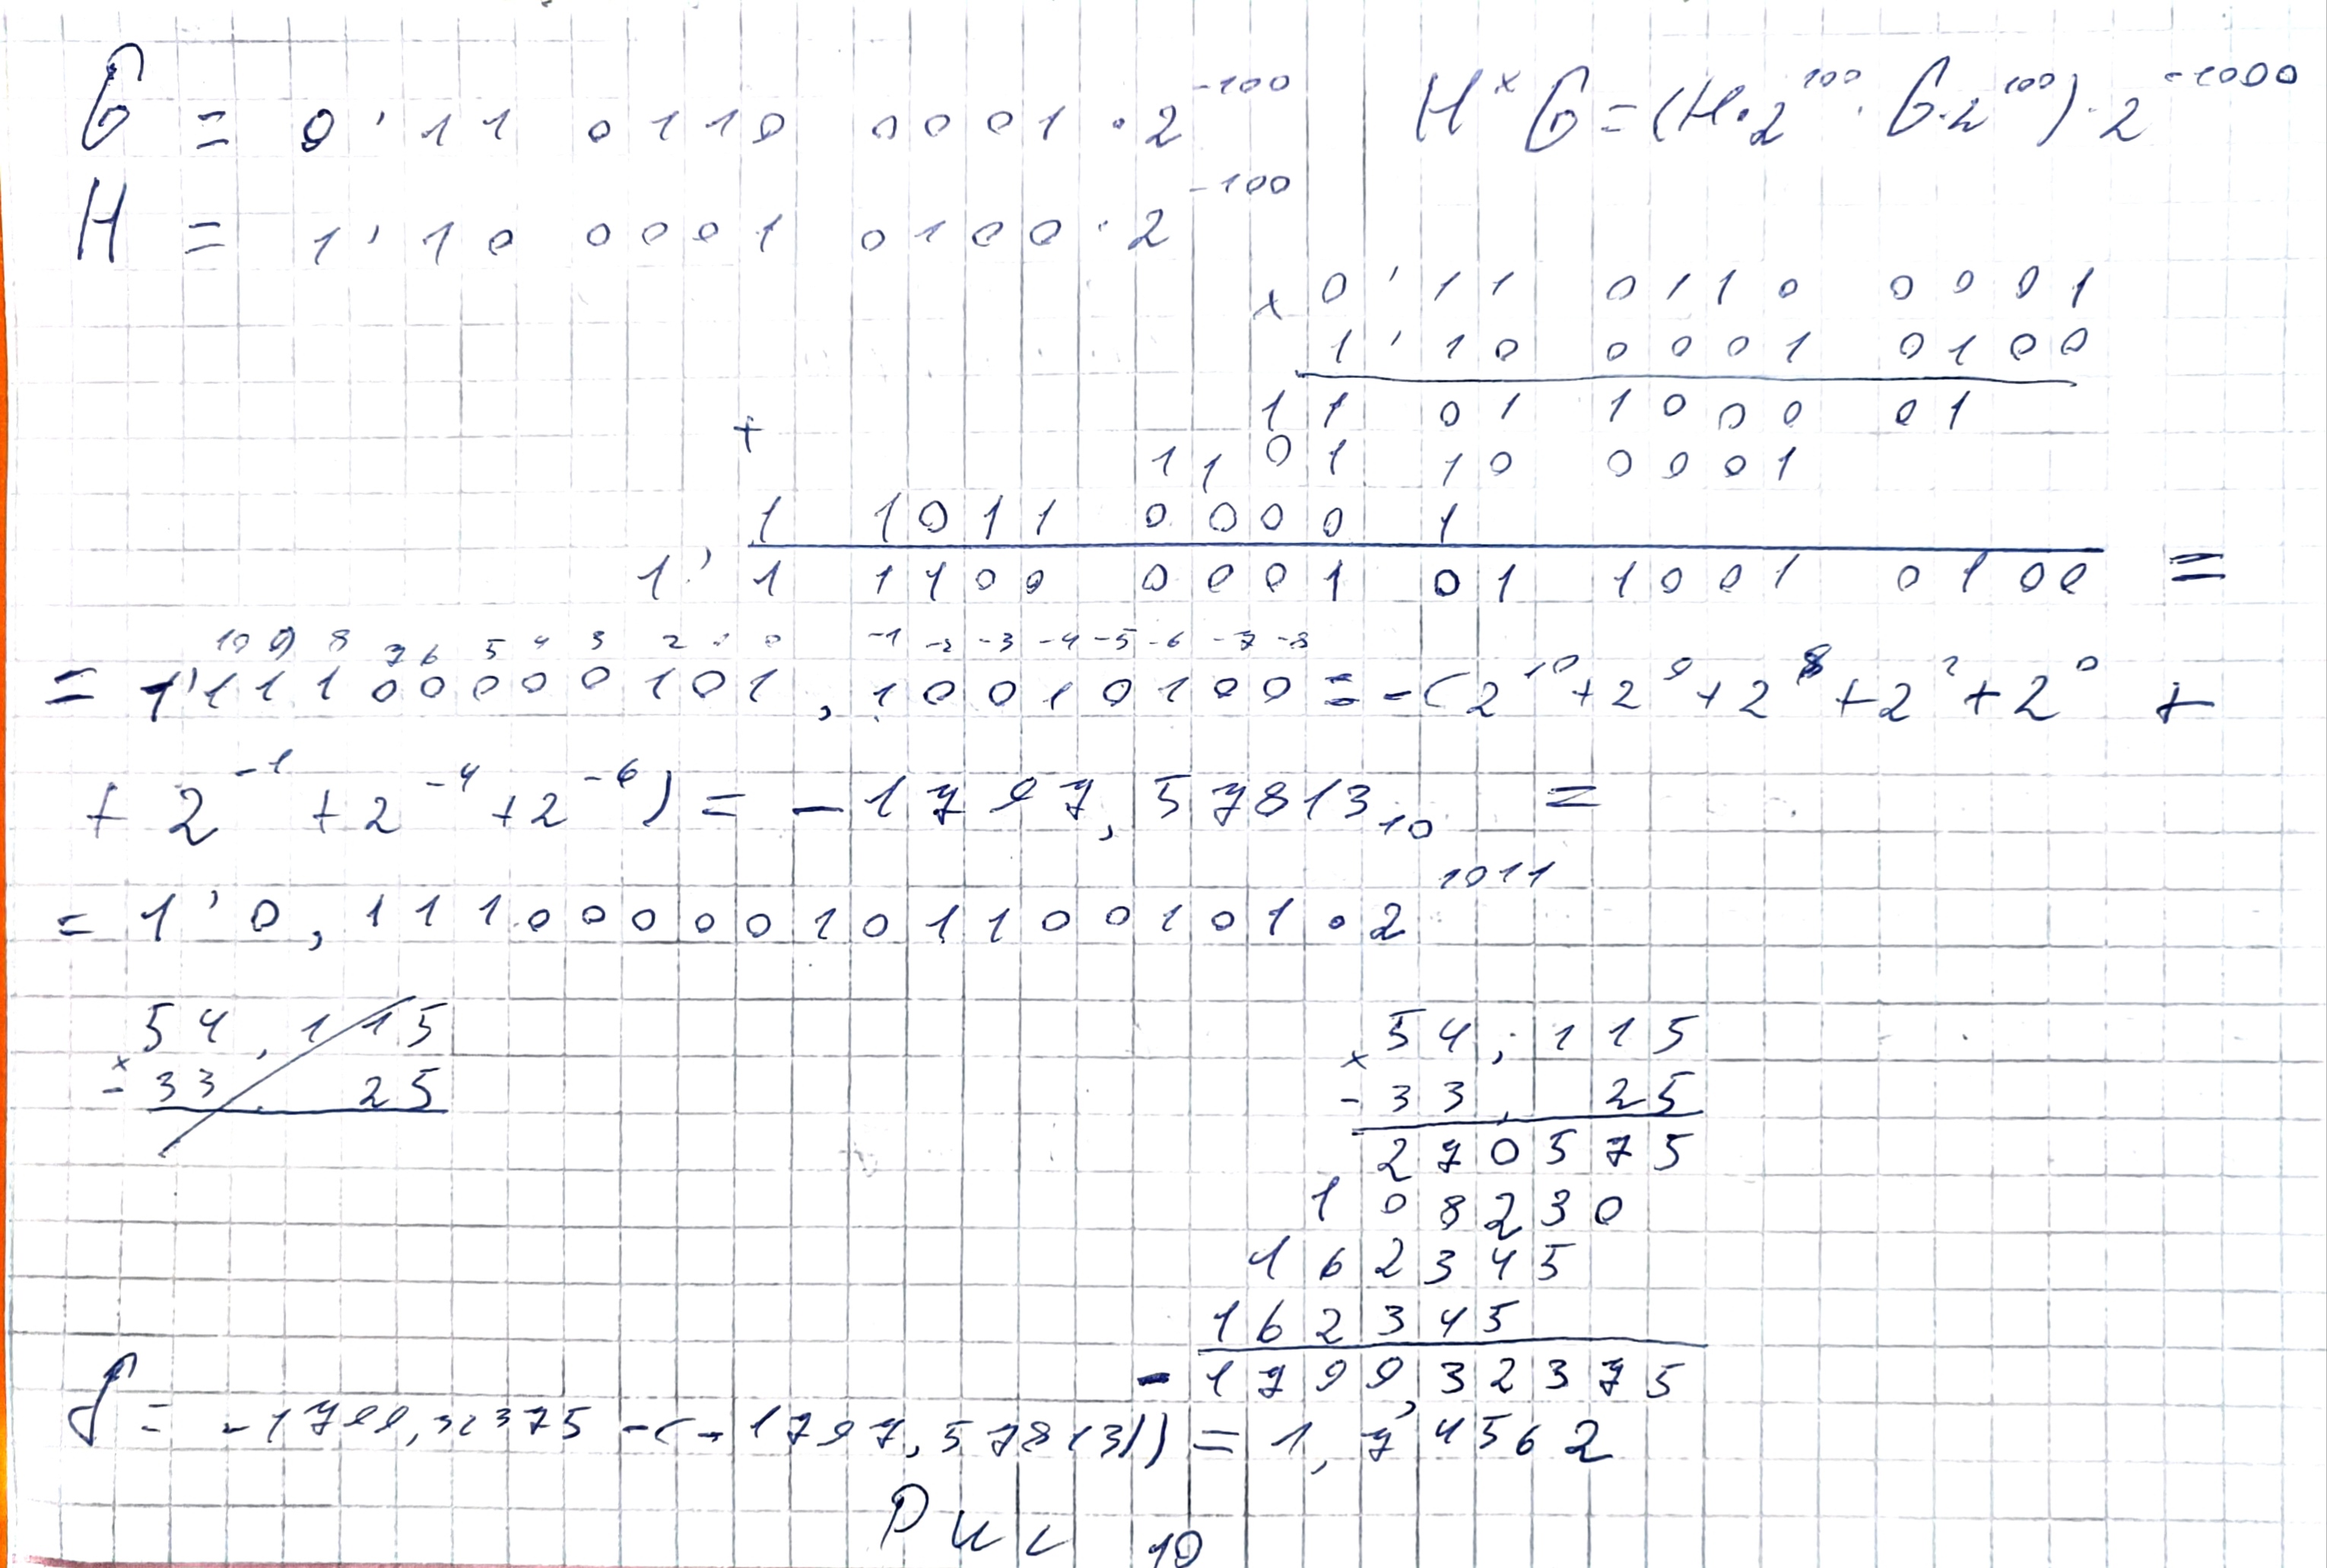 G = 0'11 0110 0001 · 2^-100    H × G = (H·2^100 · G·2^100) · 2^-1000
H = 1'10 0001 0100 · 2^-100
× 0'11 0110 0001
1'10 0001 0100
11 01 1000 01
+ 1101 10 0001
1 1011 0000 1
1'1 1100 0001 01 1001 0100 =
10 9 8 7 6 5 4 3 2 1 0 -1 -2 -3 -4 -5 -6 -7 -8
= 1'11100000101,10010100 = -(2^10 + 2^9 + 2^8 + 2^2 + 2^0 +
+ 2^-1 + 2^-4 + 2^-6) = -1797,57813_10 =
= 1'0,11100000101100101 · 2^1011
54,115    × 54,115
× -33,25    -33,25
270575
108230
162345
162345
-1799,32375
δ = -1799,32375 -(-1797,57813)) = 1,74562
Рис 10